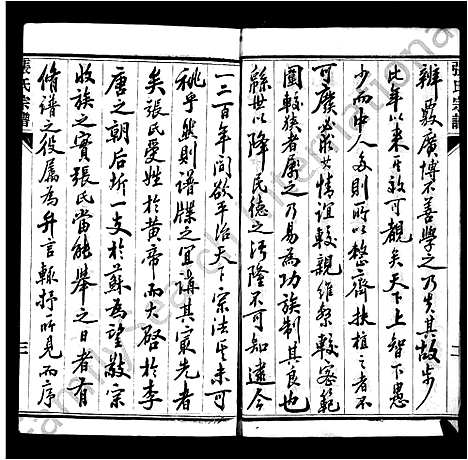 張氏宗譜
辨覈廣博不善學之乃失其故步
比年以来其效可觀矣天下上智下愚
少而中人多則所以整齊扶植之者不
可廢也情誼較親維繫較密範
圍較狭者厲之乃易為功族制其良也
繇世以降民德之汚隆不可知逮今
二
一二百年间欲平治天下宗法其未可
祧乎然則譜牒之宜講其東先者
矣張氏受姓於黄帝而大啓於李
唐之朝后析一支於蘇為望敦宗
收族之實張氏當能舉之日者有
脩譜之役屬為弁言輙抒所見而序
張氏宗譜
三
Family Search International